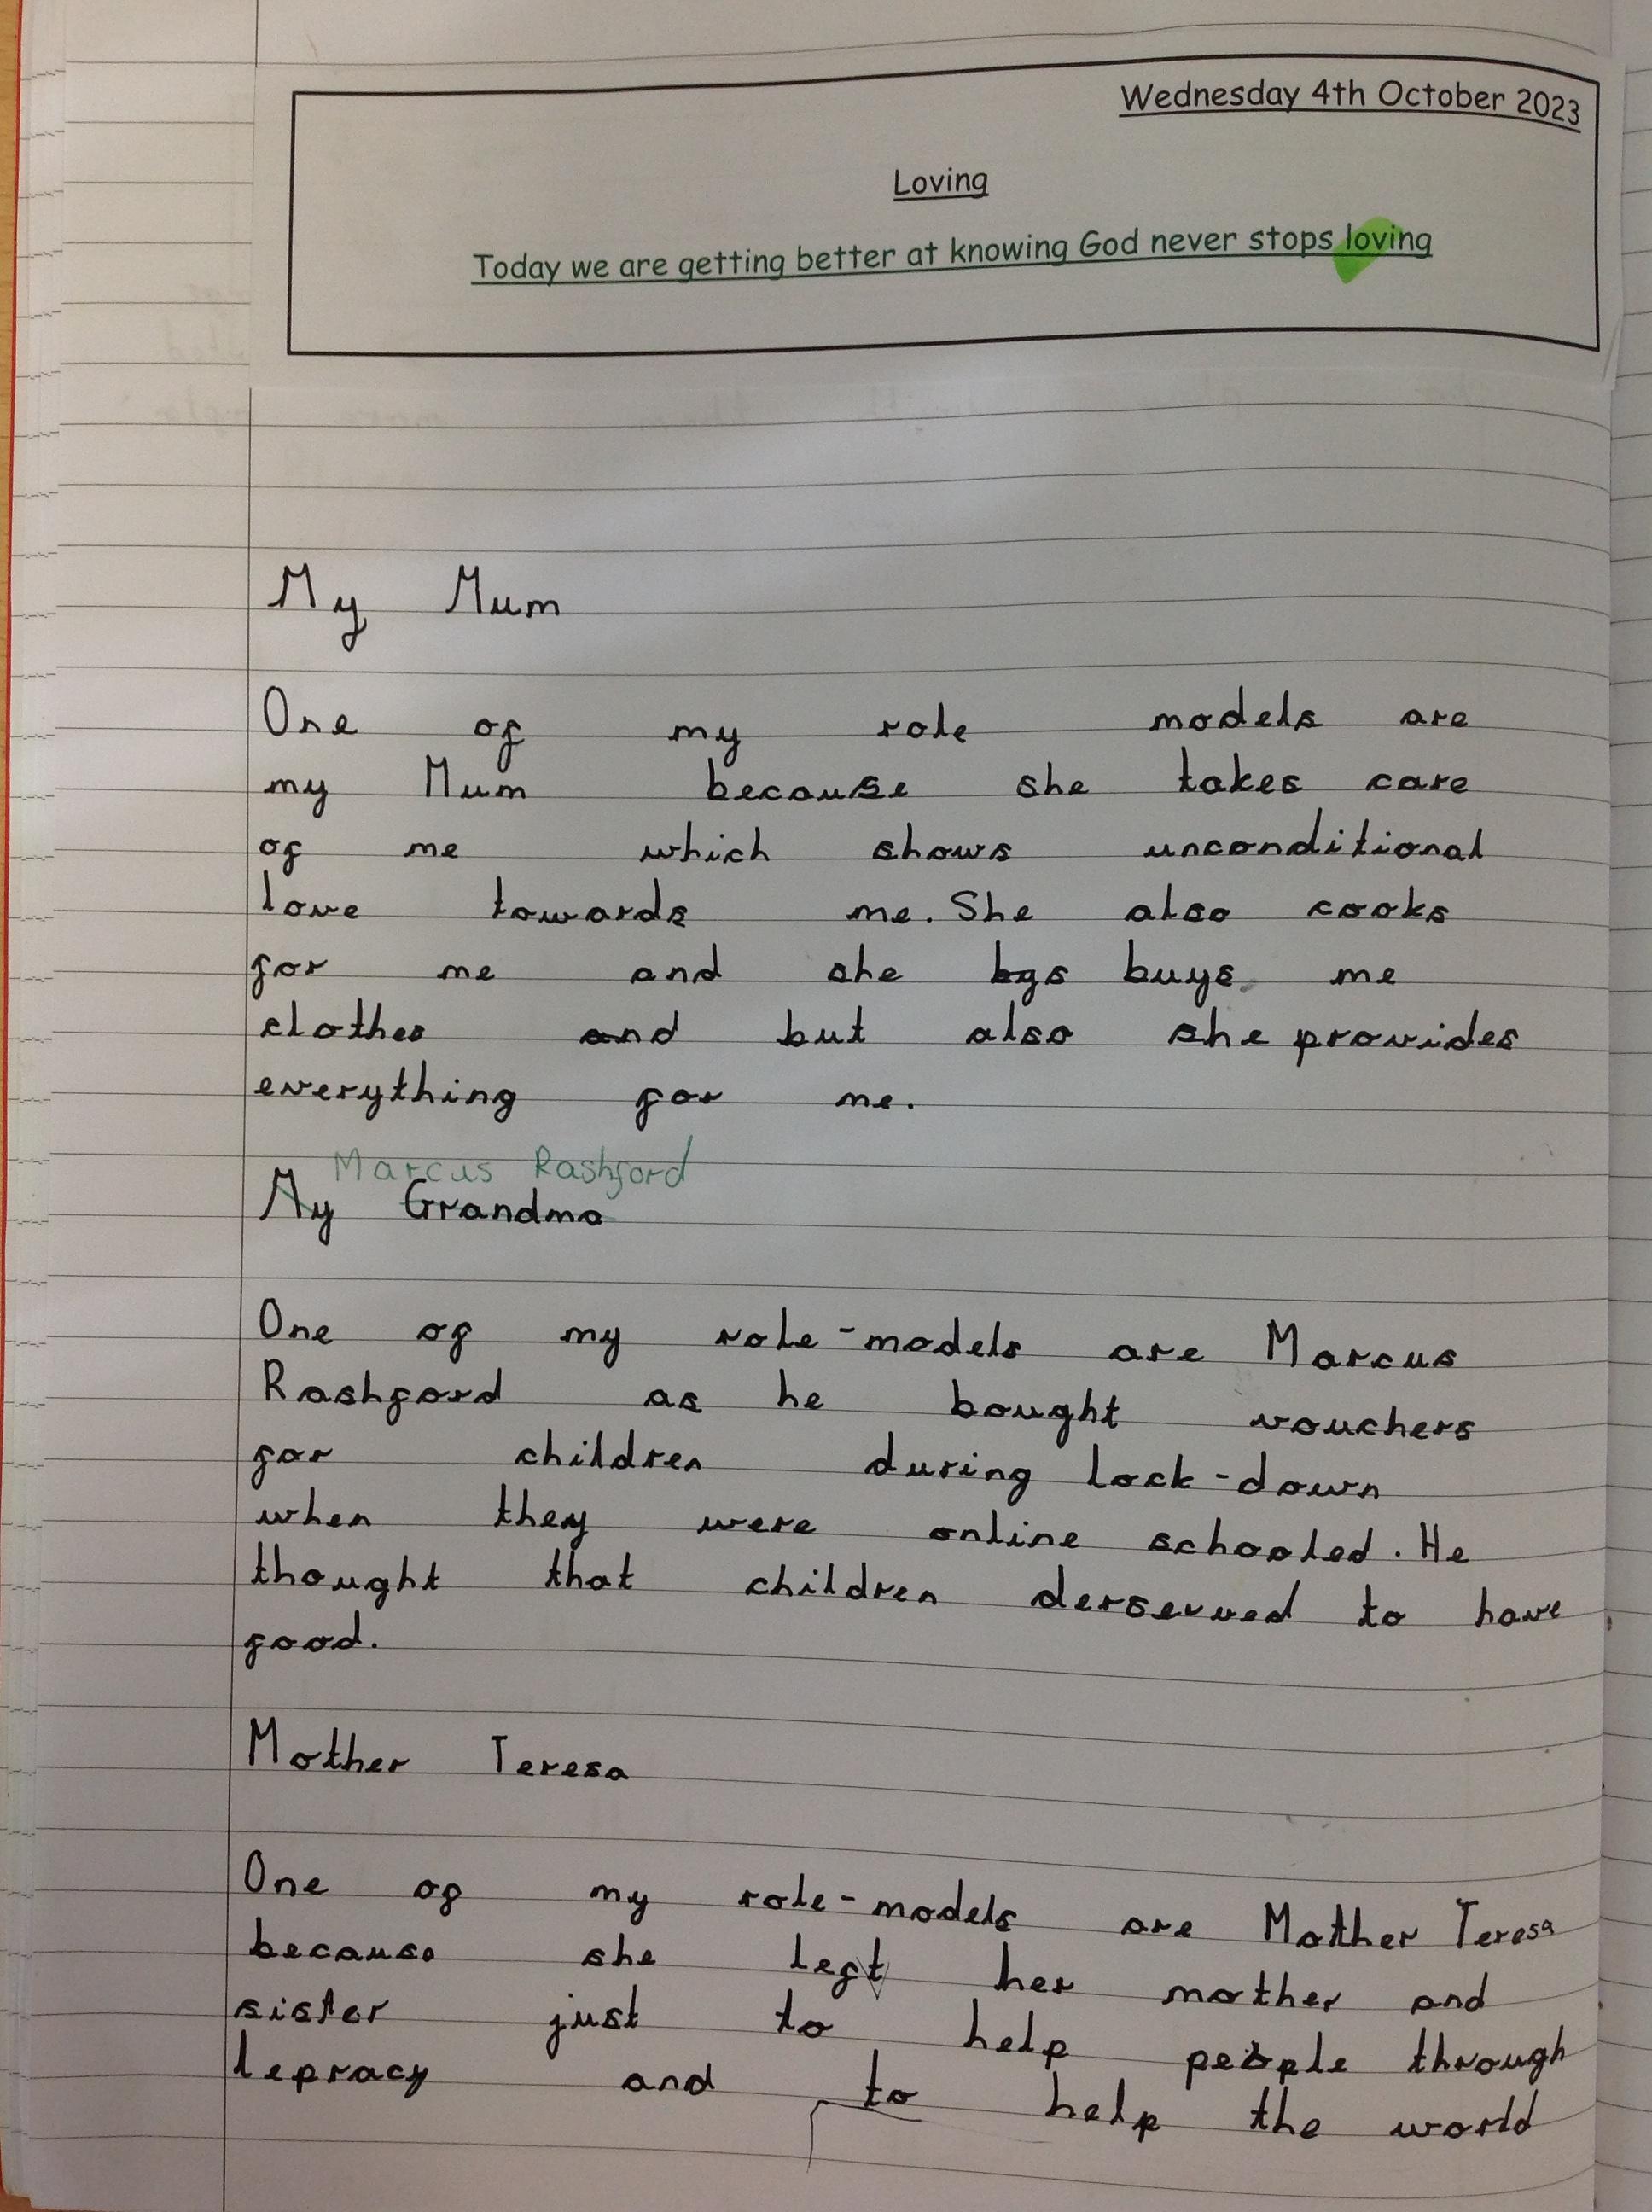 Wednesday 4th October 2023
Loving
Today we are getting better at knowing God never stops loving
My Mum
One of my role models are
my Mum because she takes care
of me which shows unconditional
love towards me. She also cooks
for me and she bys buys me
clothes and but also she provides
everything for me.
Marcus Rashford
My Grandma
One of my role-models are Marcus
Rashford as he bought vouchers
for children during lock-down
when they were online schooled. He
thought that children derserved to have
food.
Mother Teresa
One of my role-models are Mother Teresa
because she left her mother and
sister just to help people through
lepracy and to help the world